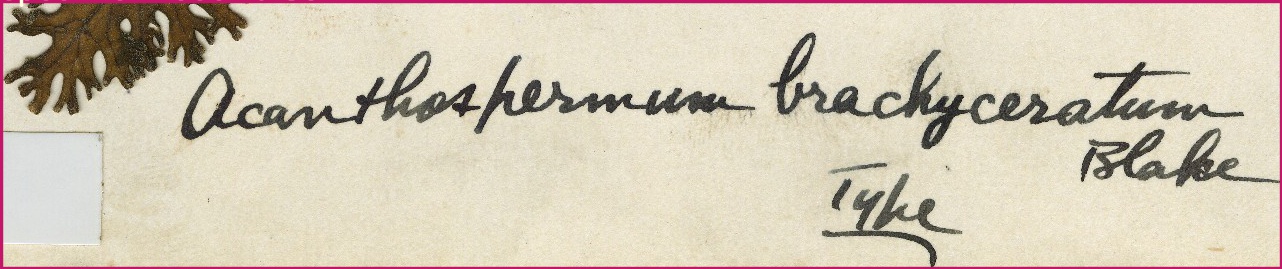 Acanthospermum brachyceratum
Blake
Type